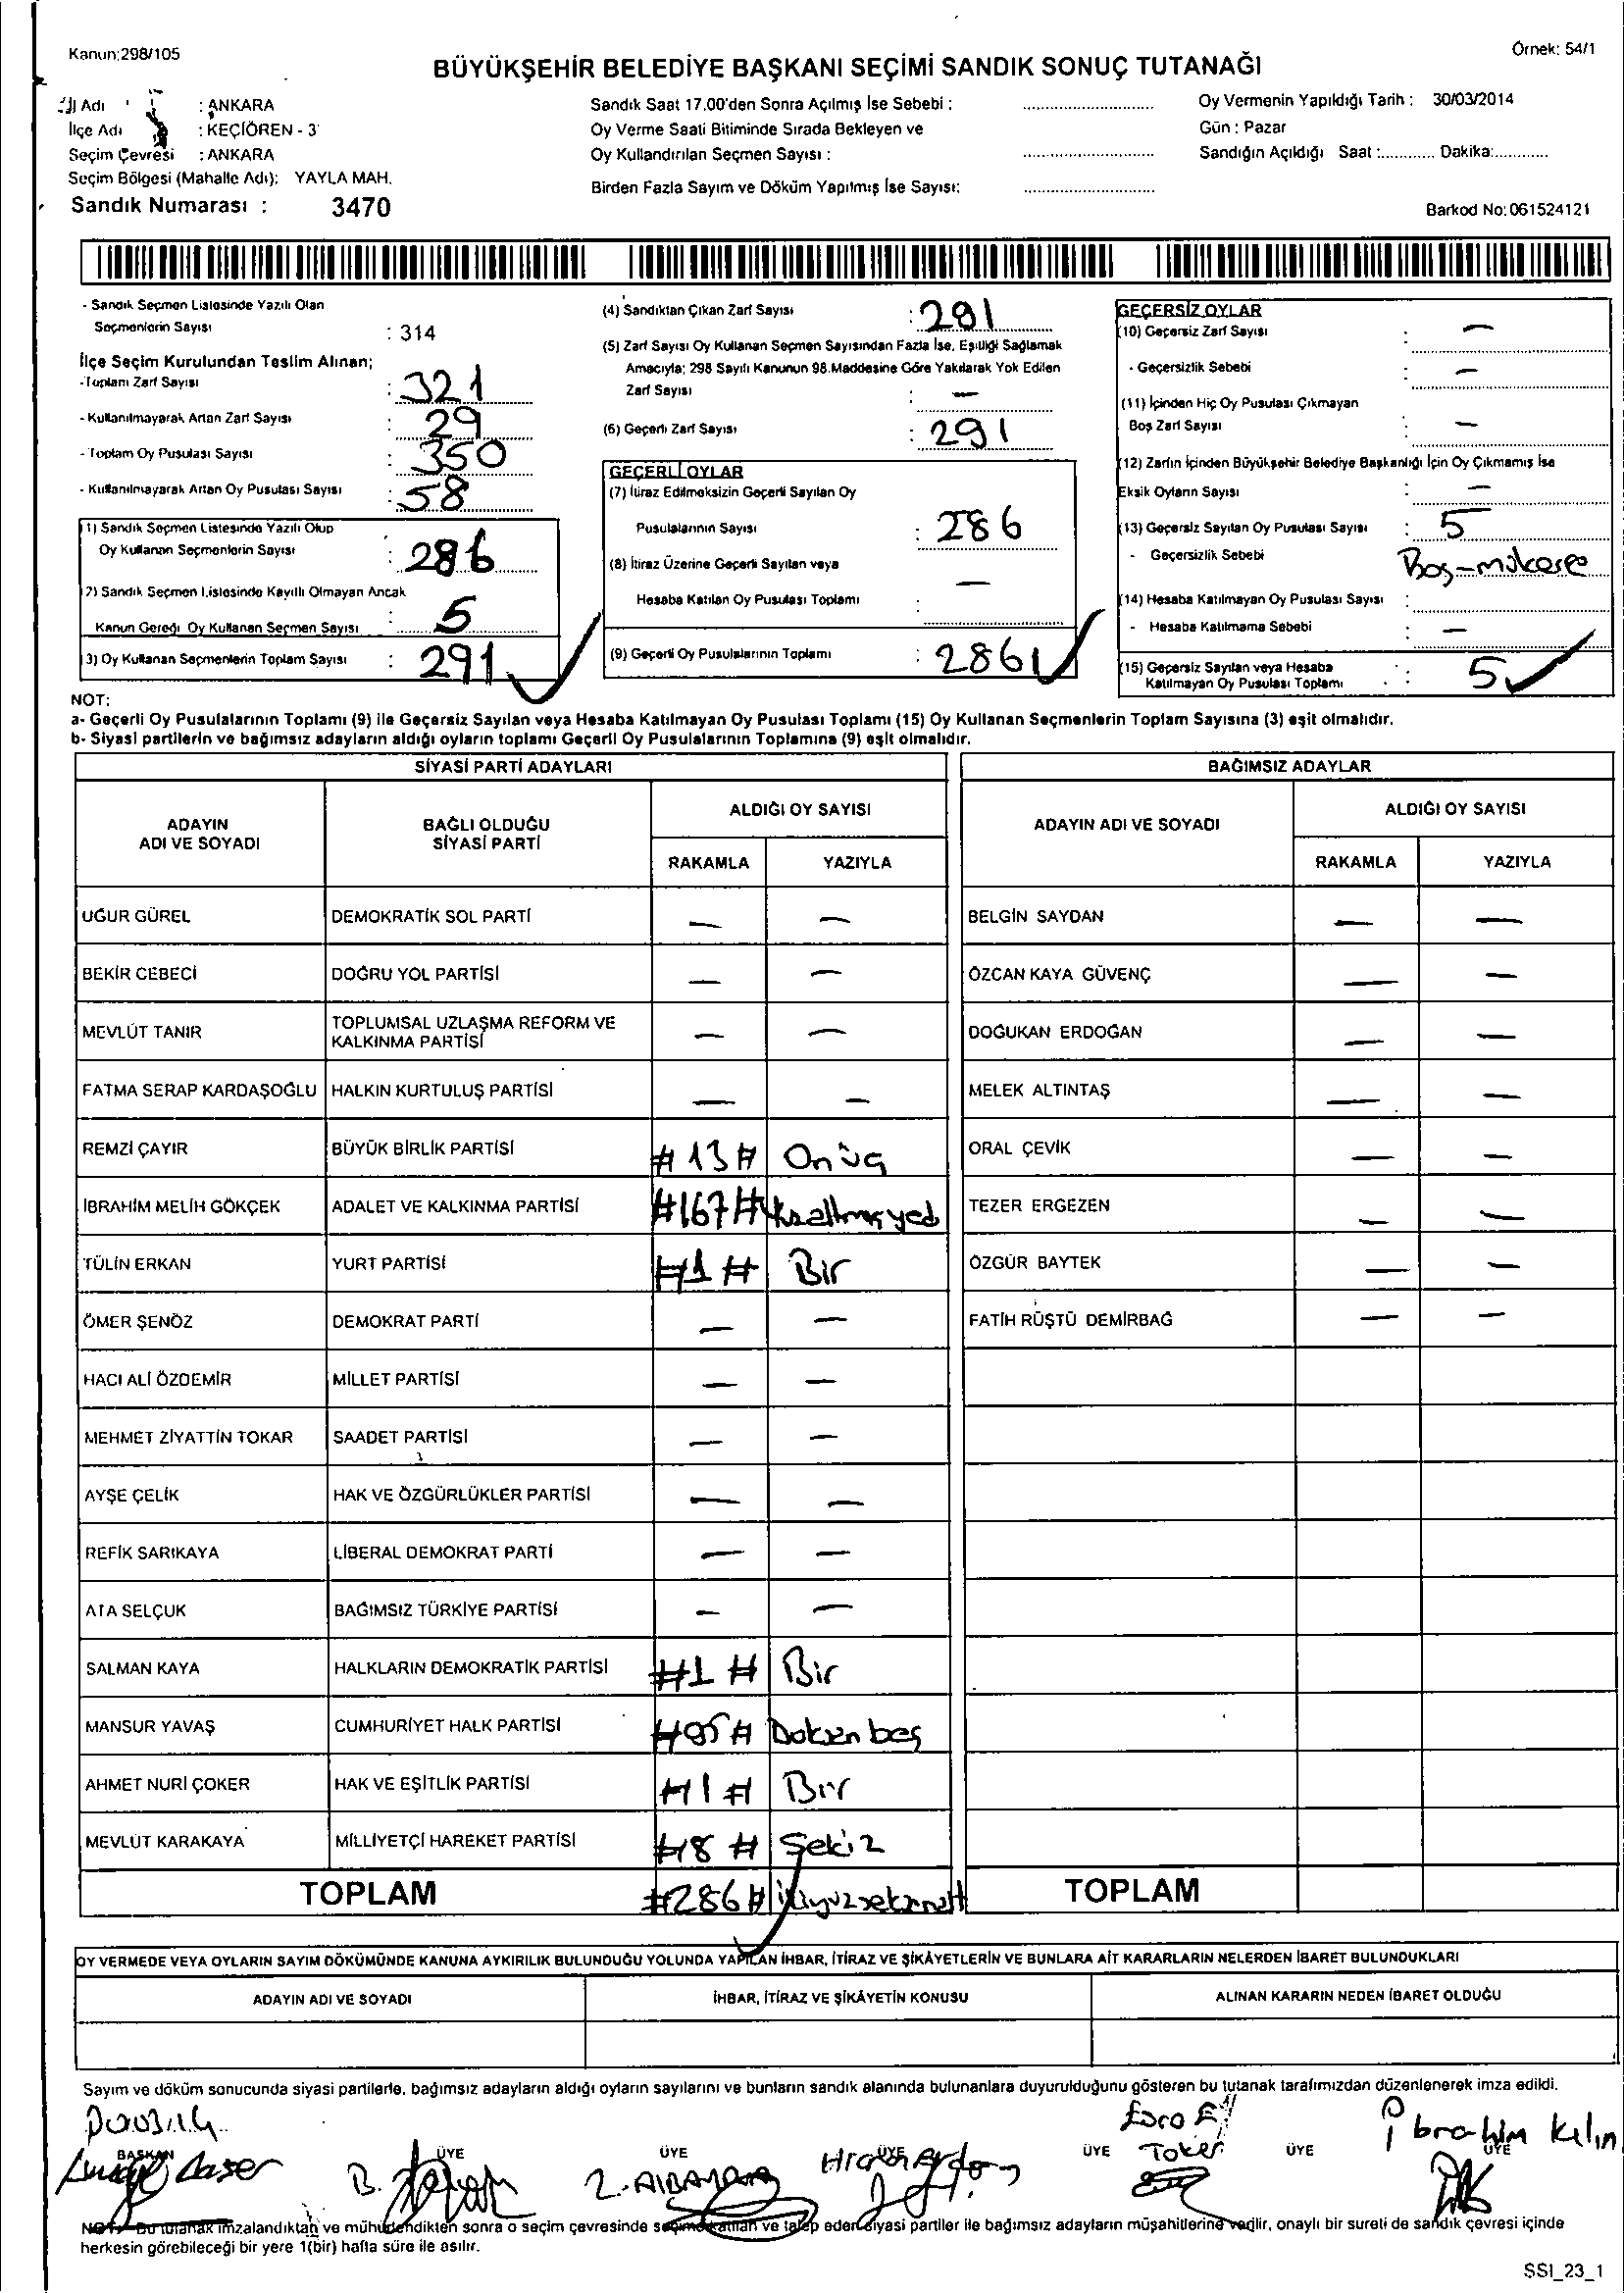 Kanun:298/105
Örnek: 54/1
BÜYÜKŞEHİR BELEDİYE BAŞKANI SEÇİMİ SANDIK SONUÇ TUTANAĞI
İl Adı : ANKARA
İlçe Adı : KEÇİÖREN - 3
Seçim Çevresi : ANKARA
Seçim Bölgesi (Mahalle Adı): YAYLA MAH.
Sandık Numarası : 3470
Sandık Saat 17.00'den Sonra Açılmış İse Sebebi :
Oy Verme Saati Bitiminde Sırada Bekleyen ve
Oy Kullandırılan Seçmen Sayısı :
Birden Fazla Sayım ve Döküm Yapılmış İse Sayısı:
Oy Vermenin Yapıldığı Tarih : 30/03/2014
Gün : Pazar
Sandığın Açıldığı Saat :............ Dakika:............
Barkod No:061524121
- Sandık Seçmen Listesinde Yazılı Olan
Seçmenlerin Sayısı : 314
İlçe Seçim Kurulundan Teslim Alınan;
-Toplam Zarf Sayısı : 321
- Kullanılmayarak Artan Zarf Sayısı : 29
- Toplam Oy Pusulası Sayısı : 350
- Kullanılmayarak Artan Oy Pusulası Sayısı : 58
1) Sandık Seçmen Listesinde Yazılı Olup
Oy Kullanan Seçmenlerin Sayısı : 286
2) Sandık Seçmen Listesinde Kayıtlı Olmayan Ancak
Kanun Gereği Oy Kullanan Seçmen Sayısı : 5
3) Oy Kullanan Seçmenlerin Toplam Sayısı : 291
(4) Sandıktan Çıkan Zarf Sayısı : 291
(5) Zarf Sayısı Oy Kullanan Seçmen Sayısından Fazla İse, Eşitliği Sağlamak
Amacıyla; 298 Sayılı Kanunun 98.Maddesine Göre Yakılarak Yok Edilen
Zarf Sayısı : —
(6) Geçerli Zarf Sayısı : 291
GEÇERLİ OYLAR
(7) İtiraz Edilmeksizin Geçerli Sayılan Oy
Pusulalarının Sayısı : 286
(8) İtiraz Üzerine Geçerli Sayılan veya
Hesaba Katılan Oy Pusulası Toplamı : —
(9) Geçerli Oy Pusulalarının Toplamı : 286
GEÇERSİZ OYLAR
(10) Geçersiz Zarf Sayısı : —
- Geçersizlik Sebebi : —
(11) İçinden Hiç Oy Pusulası Çıkmayan
Boş Zarf Sayısı : —
(12) Zarfın İçinden Büyükşehir Belediye Başkanlığı İçin Oy Çıkmamış İse
Eksik Oyların Sayısı : —
(13) Geçersiz Sayılan Oy Pusulası Sayısı : 5
- Geçersizlik Sebebi Boş-mükerre
(14) Hesaba Katılmayan Oy Pusulası Sayısı :
- Hesaba Katılmama Sebebi : —
(15) Geçersiz Sayılan veya Hesaba
Katılmayan Oy Pusulası Toplamı : 5
NOT:
a- Geçerli Oy Pusulalarının Toplamı (9) ile Geçersiz Sayılan veya Hesaba Katılmayan Oy Pusulası Toplamı (15) Oy Kullanan Seçmenlerin Toplam Sayısına (3) eşit olmalıdır.
b- Siyasi partilerin ve bağımsız adayların aldığı oyların toplamı Geçerli Oy Pusulalarının Toplamına (9) eşit olmalıdır.
SİYASİ PARTİ ADAYLARI
ADAYIN ADI VE SOYADI
BAĞLI OLDUĞU SİYASİ PARTİ
ALDIĞI OY SAYISI
RAKAMLA YAZIYLA
UĞUR GÜREL DEMOKRATİK SOL PARTİ — —
BEKİR CEBECİ DOĞRU YOL PARTİSİ — —
MEVLÜT TANIR TOPLUMSAL UZLAŞMA REFORM VE KALKINMA PARTİSİ — —
FATMA SERAP KARDAŞOĞLU HALKIN KURTULUŞ PARTİSİ — —
REMZİ ÇAYIR BÜYÜK BİRLİK PARTİSİ #13# Onüç
İBRAHİM MELİH GÖKÇEK ADALET VE KALKINMA PARTİSİ #167#
TÜLİN ERKAN YURT PARTİSİ #1# Bir
ÖMER ŞENÖZ DEMOKRAT PARTİ — —
HACI ALİ ÖZDEMİR MİLLET PARTİSİ — —
MEHMET ZİYATTİN TOKAR SAADET PARTİSİ — —
AYŞE ÇELİK HAK VE ÖZGÜRLÜKLER PARTİSİ — —
REFİK SARIKAYA LİBERAL DEMOKRAT PARTİ — —
ATA SELÇUK BAĞIMSIZ TÜRKİYE PARTİSİ — —
SALMAN KAYA HALKLARIN DEMOKRATİK PARTİSİ #1# Bir
MANSUR YAVAŞ CUMHURİYET HALK PARTİSİ #95# Doksen beş
AHMET NURİ ÇOKER HAK VE EŞİTLİK PARTİSİ #1# Bir
MEVLÜT KARAKAYA MİLLİYETÇİ HAREKET PARTİSİ #8# Sekiz
TOPLAM #286#
BAĞIMSIZ ADAYLAR
ADAYIN ADI VE SOYADI
ALDIĞI OY SAYISI
RAKAMLA YAZIYLA
BELGİN SAYDAN — —
ÖZCAN KAYA GÜVENÇ — —
DOĞUKAN ERDOĞAN — —
MELEK ALTINTAŞ — —
ORAL ÇEVİK — —
TEZER ERGEZEN — —
ÖZGÜR BAYTEK — —
FATİH RÜŞTÜ DEMİRBAĞ — —
TOPLAM
OY VERMEDE VEYA OYLARIN SAYIM DÖKÜMÜNDE KANUNA AYKIRILIK BULUNDUĞU YOLUNDA YAPILAN İHBAR, İTİRAZ VE ŞİKÂYETLERİN VE BUNLARA AİT KARARLARIN NELERDEN İBARET BULUNDUKLARI
ADAYIN ADI VE SOYADI İHBAR, İTİRAZ VE ŞİKÂYETİN KONUSU ALINAN KARARIN NEDEN İBARET OLDUĞU
Sayım ve döküm sonucunda siyasi partilerle, bağımsız adayların aldığı oyların sayılarını ve bunların sandık alanında bulunanlara duyurulduğunu gösteren bu tutanak tarafımızdan düzenlenerek imza edildi.
BAŞKAN ÜYE ÜYE ÜYE ÜYE ÜYE ÜYE
Toker
İbrahim Kılın
NOT: Bu tutanak imzalandıktan ve mühürlendikten sonra o seçim çevresinde seçime katılan ve talep eden siyasi partiler ile bağımsız adayların müşahitlerine verilir, onaylı bir sureti de sandık çevresi içinde
herkesin görebileceği bir yere 1(bir) hafta süre ile asılır.
SSI_23_1